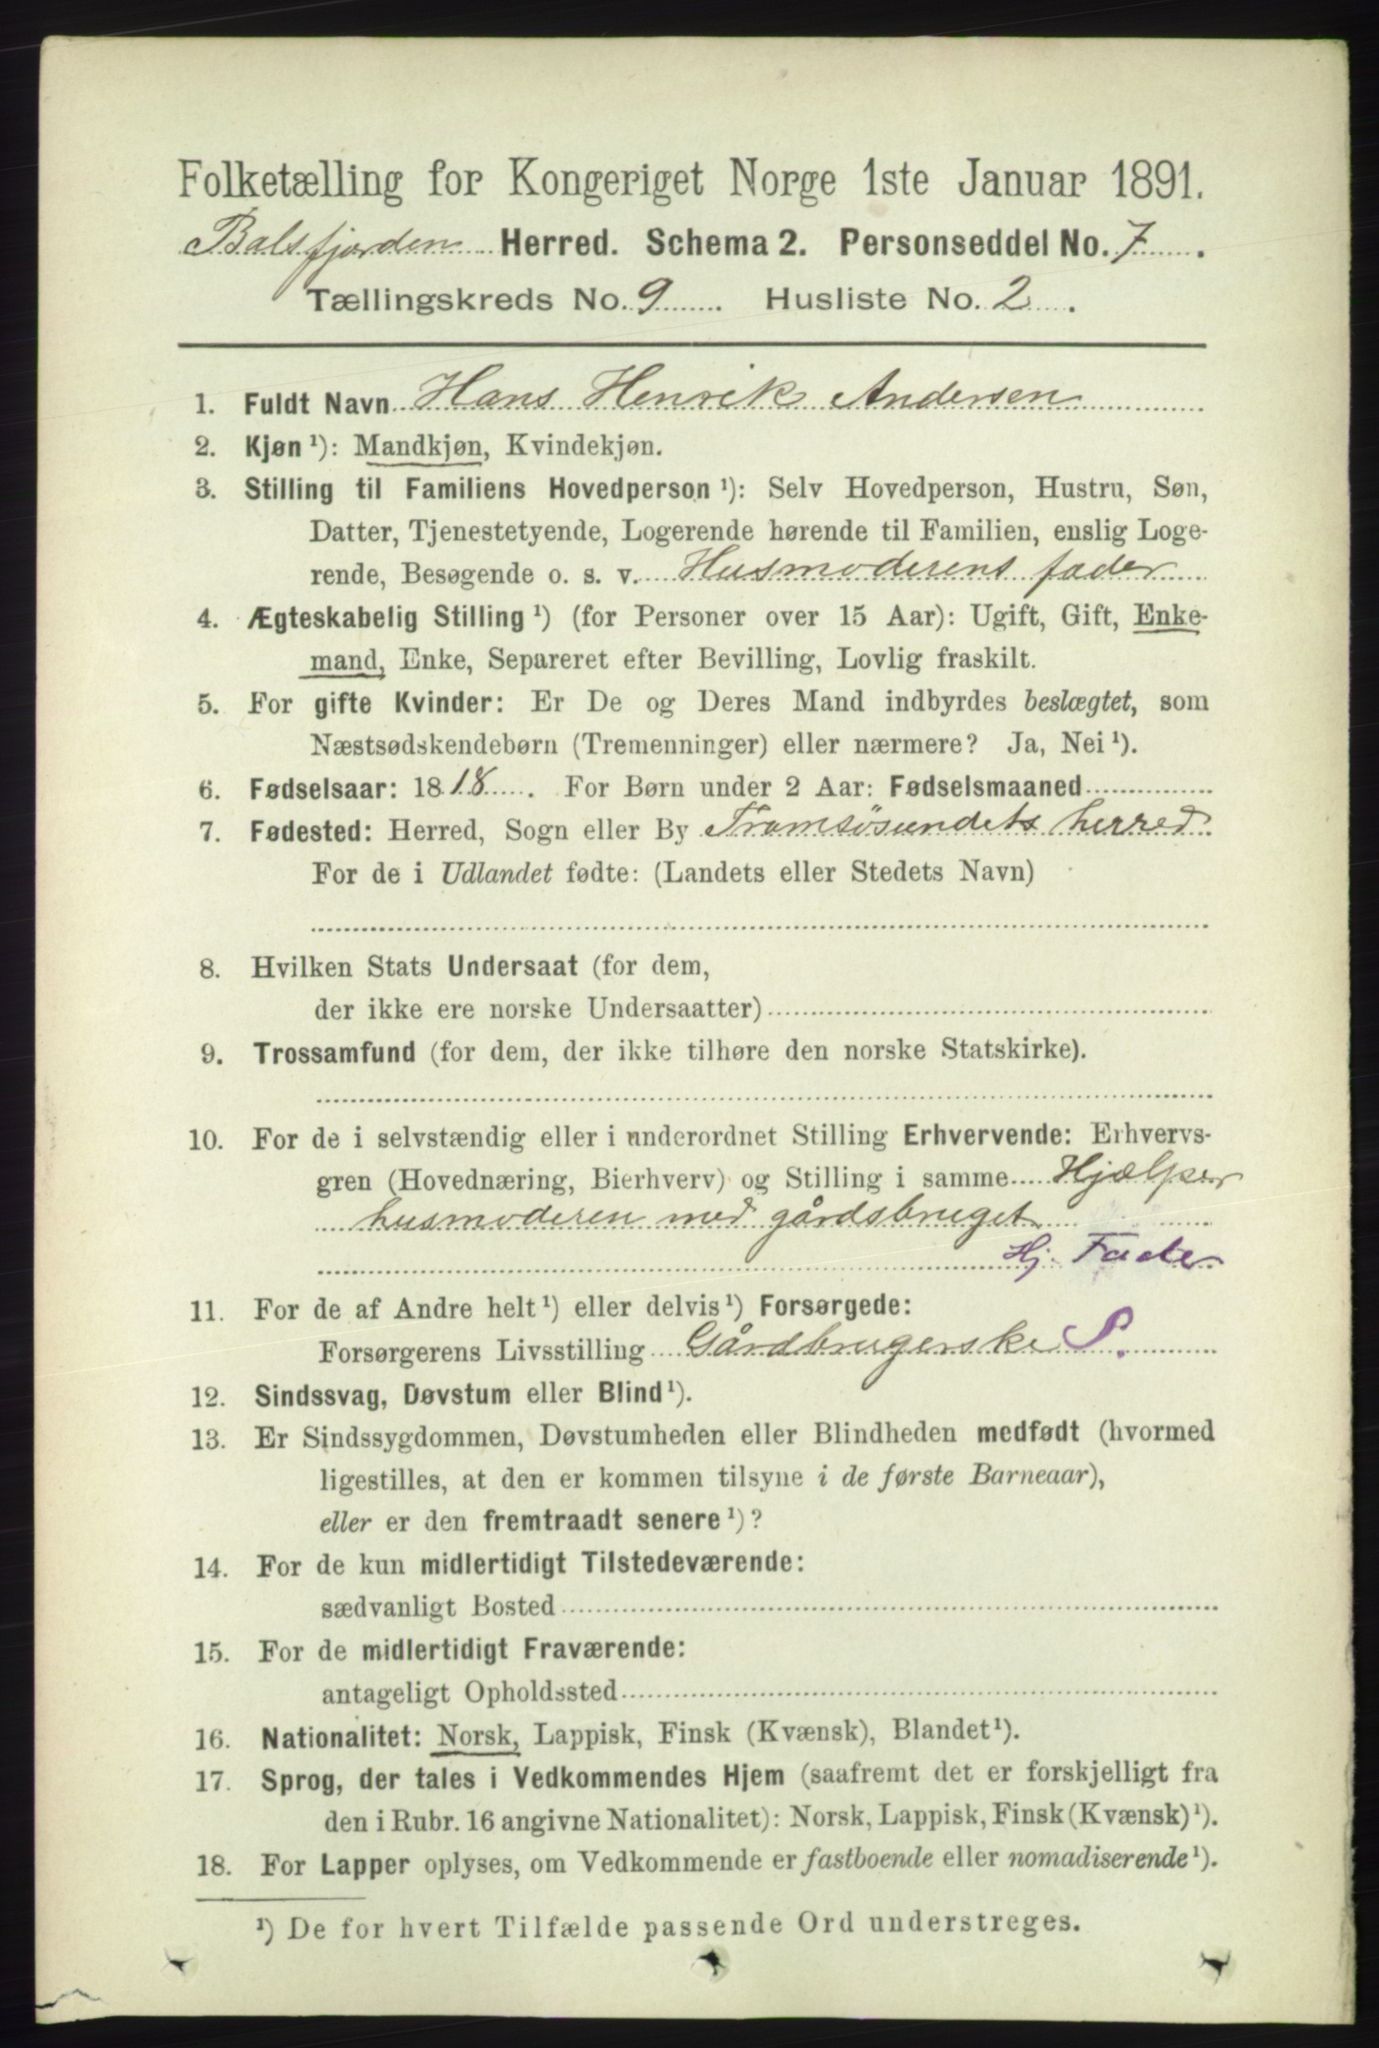 Folketælling for Kongeriget Norge 1ste Januar 1891.
Balsfjorden Herred. Schema 2. Personseddel No. 7.
Tællingskreds No. 9. Husliste No. 2.
1. Fuldt Navn Hans Henrik Andersen
2. Kjøn ¹): Mandkjøn, Kvindekjøn.
3. Stilling til Familiens Hovedperson ¹): Selv Hovedperson, Hustru, Søn,
Datter, Tjenestetyende, Logerende hørende til Familien, enslig Loge-
rende, Besøgende o. s. v. Husmoderens fader
4. Ægteskabelig Stilling ¹) (for Personer over 15 Aar): Ugift, Gift, Enke-
mand, Enke, Separeret efter Bevilling, Lovlig fraskilt.
5. For gifte Kvinder: Er De og Deres Mand indbyrdes beslægtet, som
Næstsødskendebørn (Tremenninger) eller nærmere? Ja, Nei ¹).
6. Fødselsaar: 1818. For Børn under 2 Aar: Fødselsmaaned
7. Fødested: Herred, Sogn eller By Tromsøsundets herred
For de i Udlandet fødte: (Landets eller Stedets Navn)
8. Hvilken Stats Undersaat (for dem,
der ikke ere norske Undersaatter)
9. Trossamfund (for dem, der ikke tilhøre den norske Statskirke).
10. For de i selvstændig eller i underordnet Stilling Erhvervende: Erhvervs-
gren (Hovednæring, Bierhverv) og Stilling i samme Hjælper
husmoderen med gårdsbruget
Hj. Fader
11. For de af Andre helt ¹) eller delvis ¹) Forsørgede:
Forsørgerens Livsstilling Gårdbrugerske S.
12. Sindssvag, Døvstum eller Blind ¹).
13. Er Sindssygdommen, Døvstumheden eller Blindheden medfødt (hvormed
ligestilles, at den er kommen tilsyne i de første Barneaar),
eller er den fremtraadt senere ¹)?
14. For de kun midlertidigt Tilstedeværende:
sædvanligt Bosted
15. For de midlertidigt Fraværende:
antageligt Opholdssted
16. Nationalitet: Norsk, Lappisk, Finsk (Kvænsk), Blandet ¹).
17. Sprog, der tales i Vedkommendes Hjem (saafremt det er forskjelligt fra
den i Rubr. 16 angivne Nationalitet): Norsk, Lappisk, Finsk (Kvænsk) ¹).
18. For Lapper oplyses, om Vedkommende er fastboende eller nomadiserende ¹).
¹) De for hvert Tilfælde passende Ord understreges.